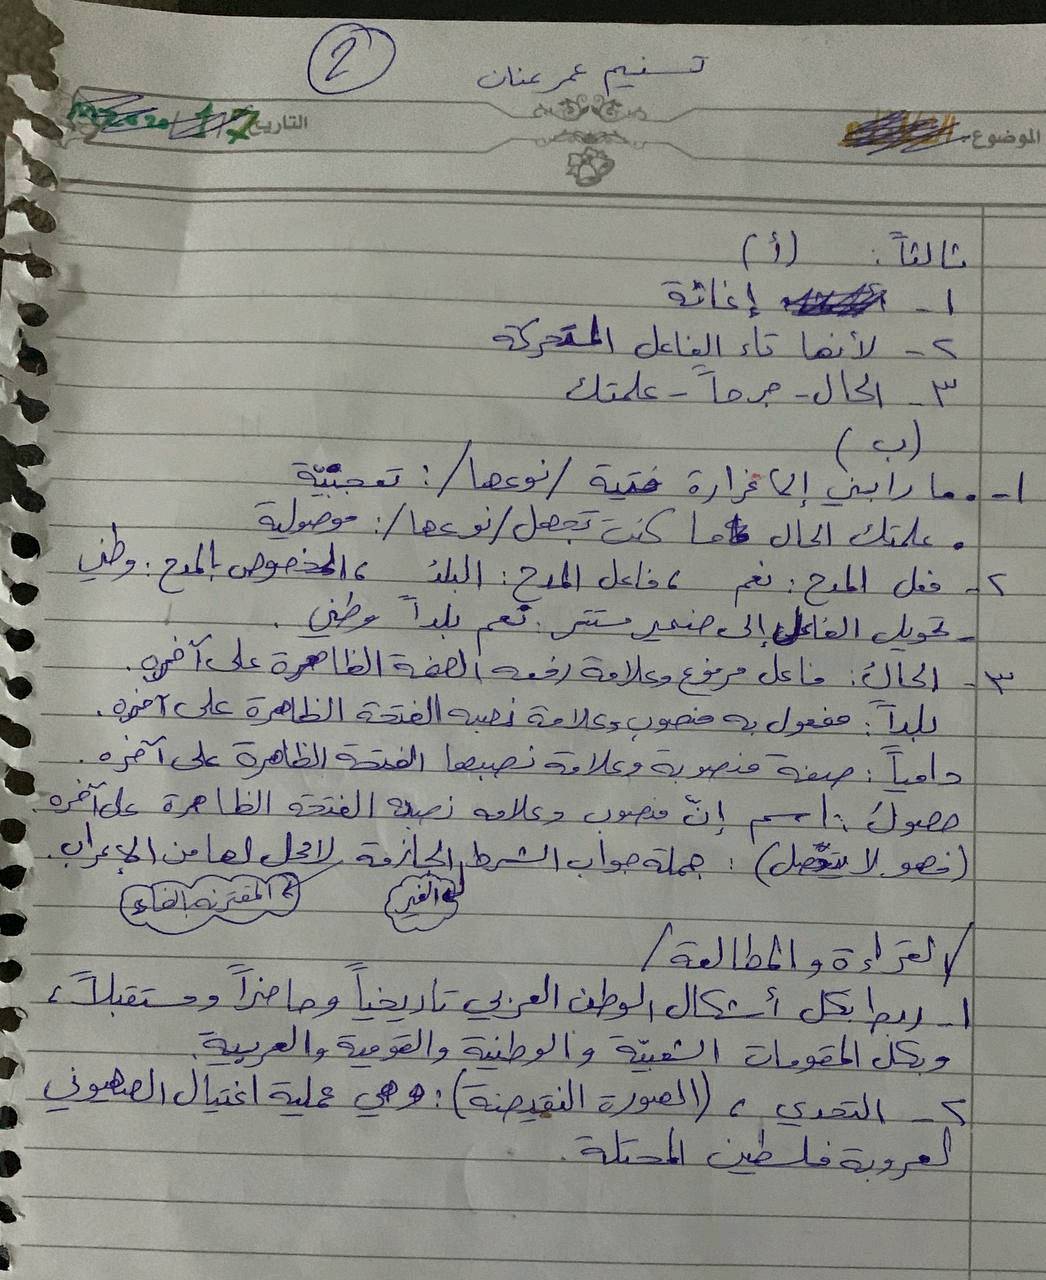 2
تسنيم عمر عنان
الموضوع:
التاريخ
ثالثاً: (أ)
١- إغاثة
٢- لأنها تاء الفاعل المتحركة
٣- الحال - جرحاً - علمتك
(ب)
١- . ما رابني إلا غرارة فتية /نوعها/: تعجبيّة
. علمتك الحال ما كنت تجهل /نوعها/: موصولية
٢- فعل المدح: نعم ، فاعل المدح: البلدُ ، المخصوص بالمدح: وطني
- تحويل الفاعل إلى ضمير مستتر: نعم بلداً وطني.
٣- الحالُ: فاعل مرفوع وعلامة رفعه الضمة الظاهرة على آخره.
بلداً: مفعول به منصوب وعلامة نصبه الفتحة الظاهرة على آخره.
دامياً: صفة منصوبة وعلامة نصبها الفتحة الظاهرة على آخره.
حصولَ: اسم إنّ منصوب وعلامه نصبه الفتحة الظاهرة على آخره.
(فهو لا يتّصل): جملة جواب الشرط الجازمة لا محل لها من الإعراب.
الغير
المقترنة بالفاء
/القراءة والمطالعة/
١- ربط بكل أشكال الوطن العربي تاريخياً وحاضراً ومستقبلاً،
وبكل المقومات الشعبيّة والوطنية والقومية والعربية.
٢- التحدي ، (الصورة النقيضة): وهي عملية اغتيال الصهيوني
لعروبة فلسطين المحتلة.